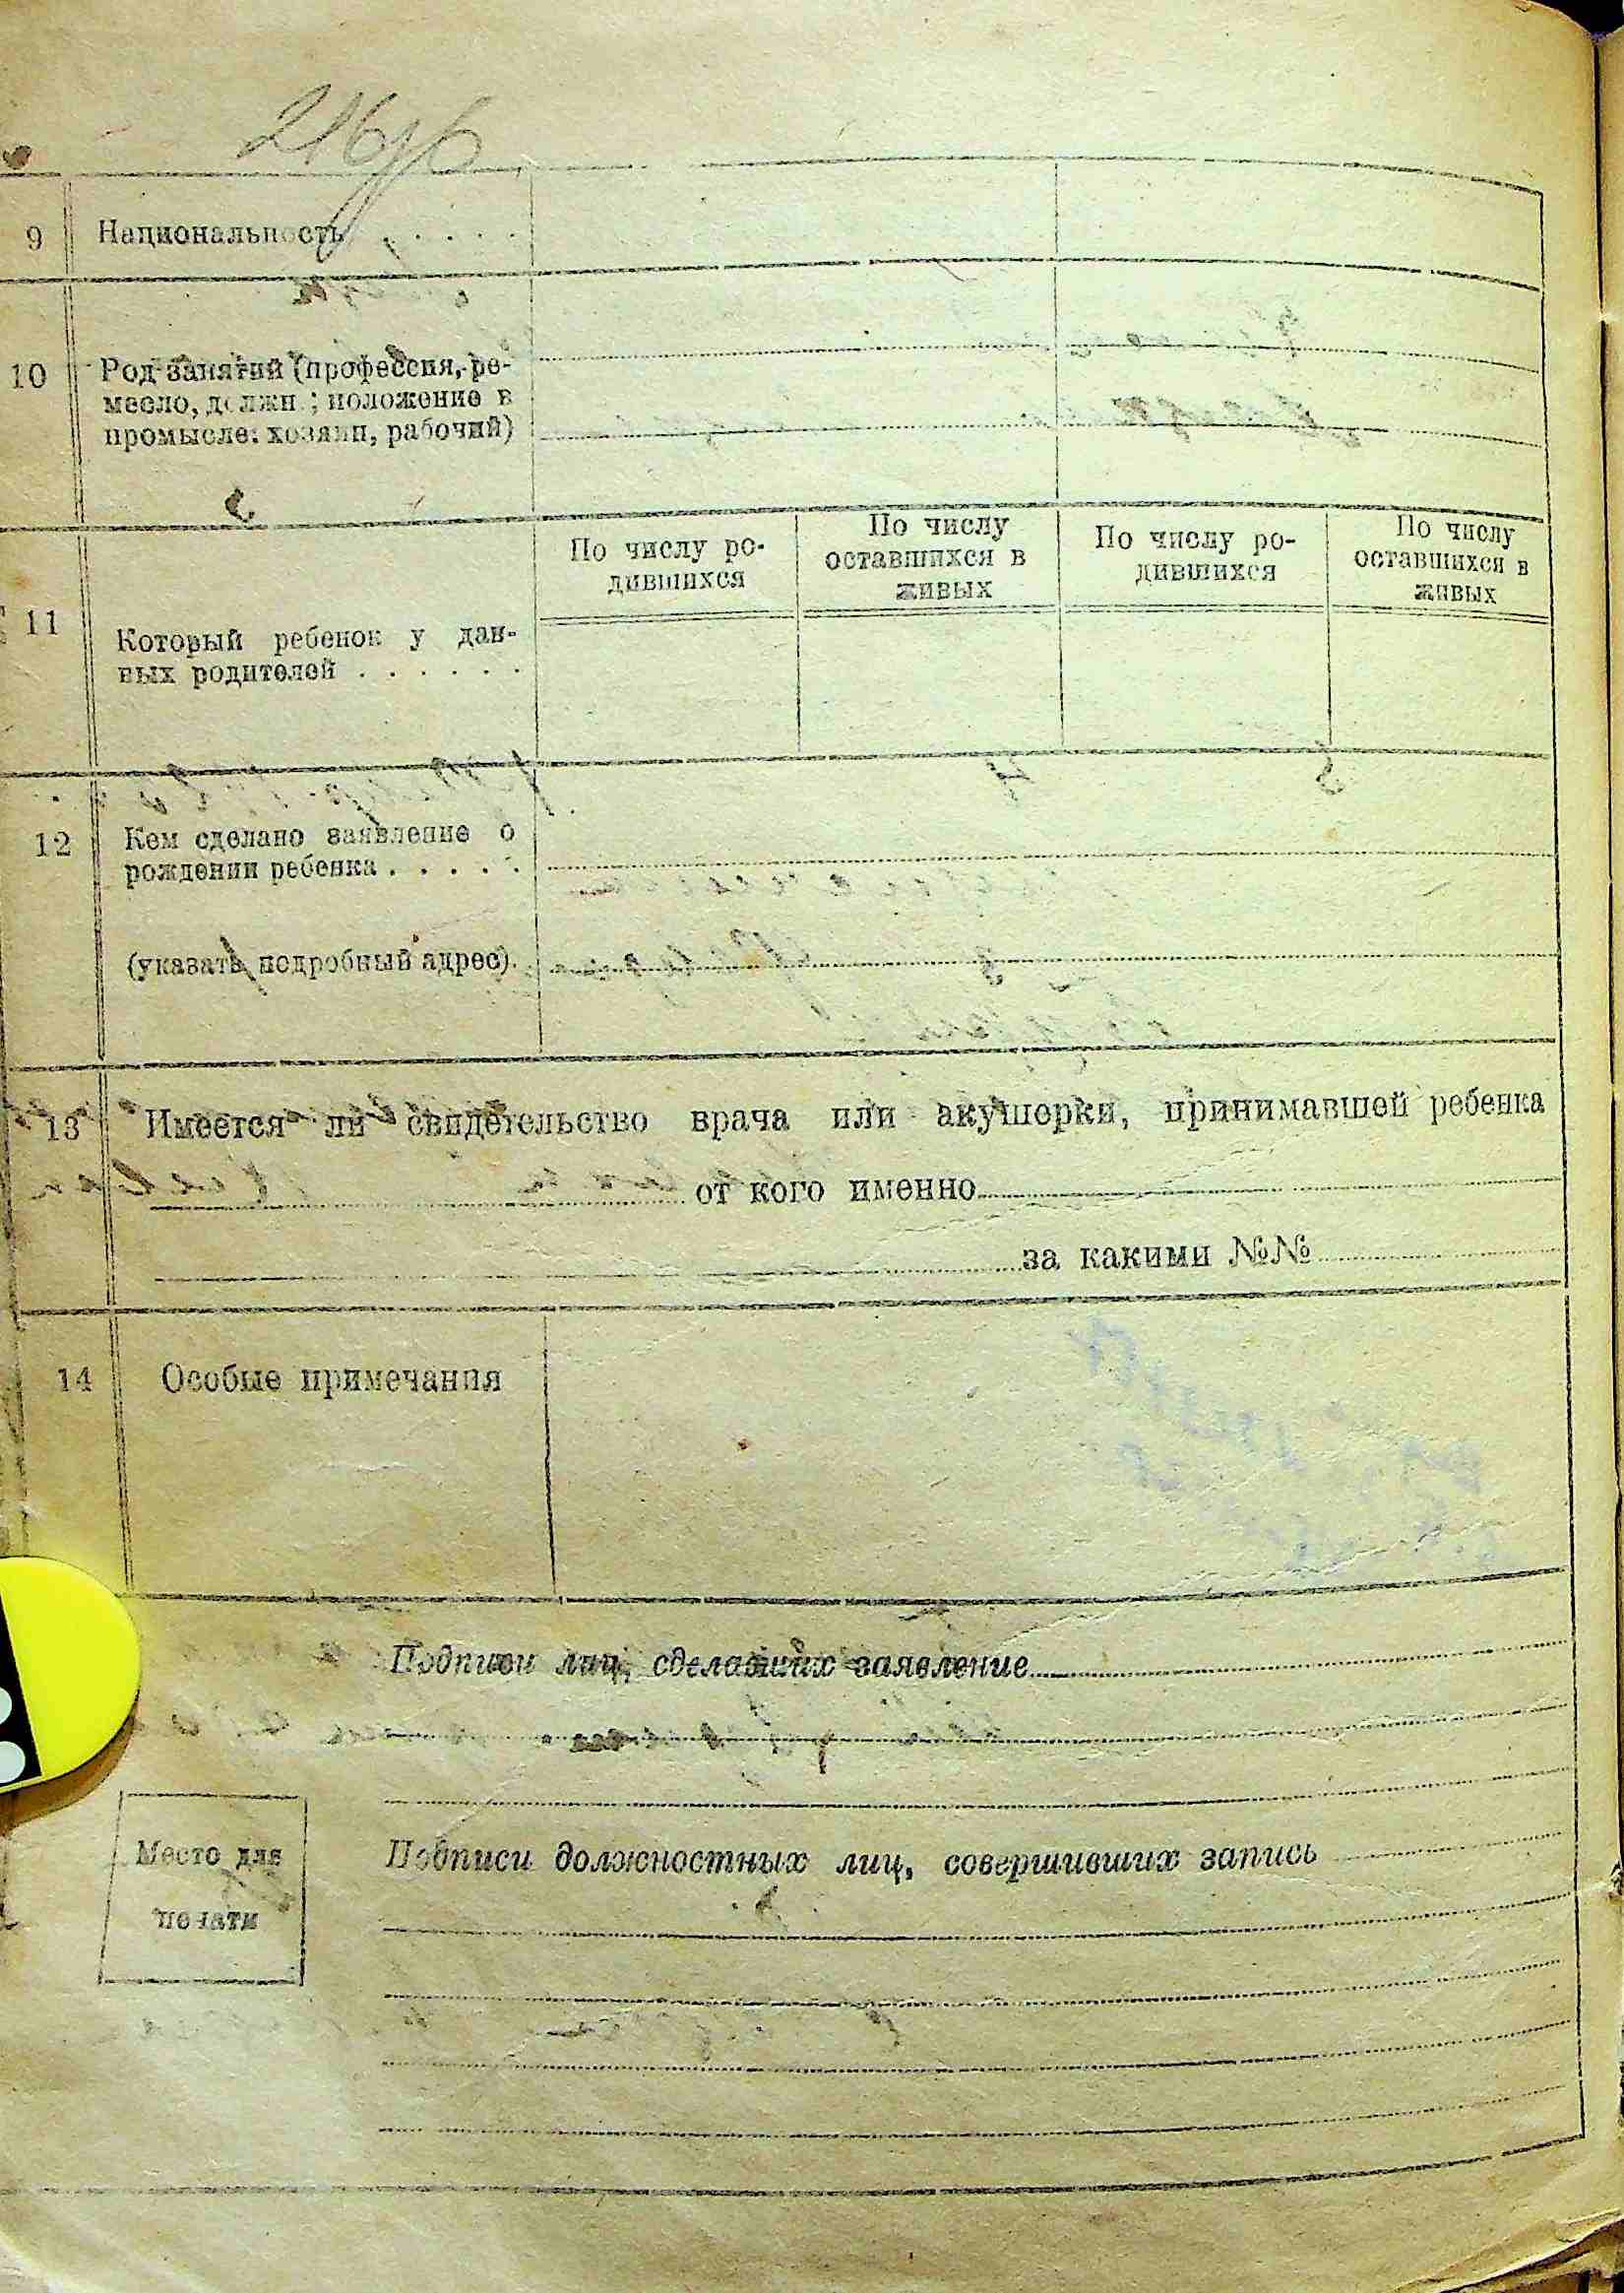 216
9 Национальность . . . . .
10 Род занятий (профессия, ре-
месло, должн.; положение в
промысле: хозяин, рабочий)
По числу ро-
дившихся
По числу
оставшихся в
живых
По числу ро-
дившихся
По числу
оставшихся в
живых
11 Который ребенок у дан-
ных родителей . . . . . .
12 Кем сделано заявление о
рождении ребенка . . . . .
(указать подробный адрес).
13 Имеется ли свидетельство врача или акушерки, принимавшей ребенка
от кого именно
за какими №№
14 Особые примечания
Подписи лиц, сделавших заявление
Место для
печати
Подписи должностных лиц, совершивших запись